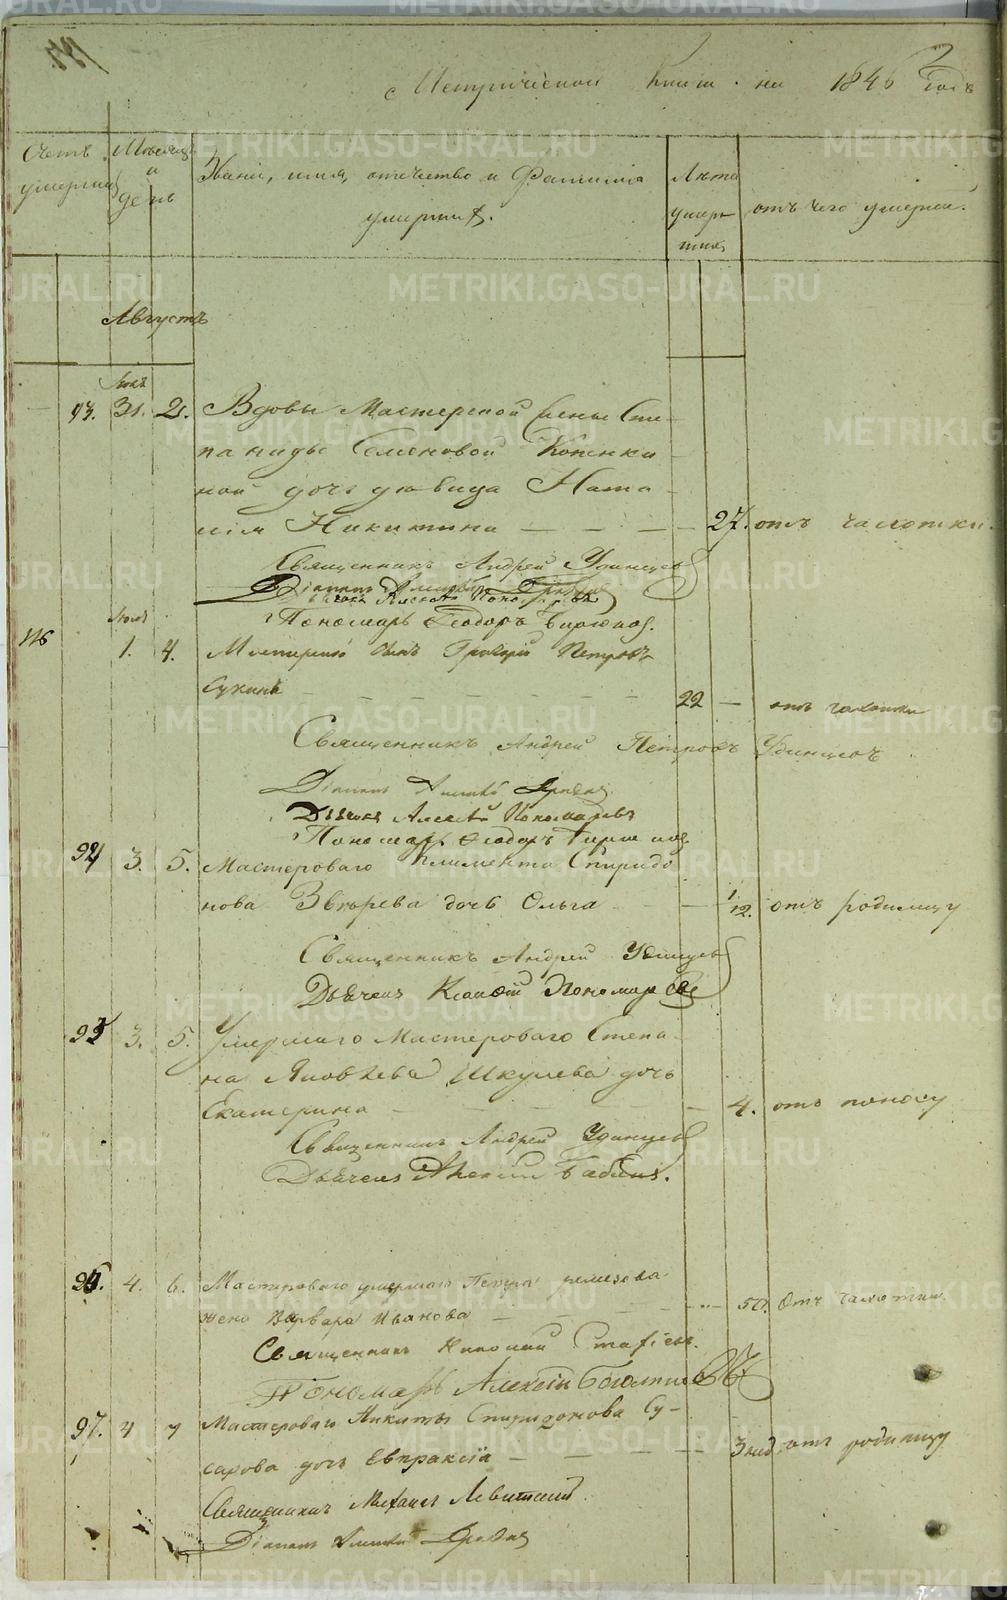 Метрической книги на 1846 годъ
Счетъ умершихъ
Мѣсяцъ и день
Званіе, имя, отчество и Фамилія
умершихъ.
Лѣта умершихъ
отъ чего умерли.
Августъ
Июль
93. 31. 2. Вдовы Мастерской жены Сте-
паниды Семеновой Копенки-
ной дочь дѣвица Ната-
лія Никитина — — — — 27. отъ чахотки.
Священникъ Андрей Удинцевъ
Діаконъ
Дьячекъ Алексѣй Пономаревъ
Пономарь Ѳеодоръ Бирюковъ.
116 1. 4. Мастерской сынъ Григорій Петровъ
Сукинъ — — — 22 — отъ чахотки
Священникъ Андрей Петровъ Удинцевъ
Діаконъ
Дьячекъ Алексѣй Пономаревъ
Пономарь Ѳеодоръ Бирюковъ
94 3. 5. Мастероваго Климента Спиридо-
нова Звѣрева дочь Ольга — 1/12. отъ родимцу
Священникъ Андрей Удинцевъ
Дьячекъ Пономаревъ
95 3. 5. Умершаго Мастероваго Степа-
на Яковлева Шкулева дочь
Екатерина — — — 4. отъ поносу
Священникъ Андрей Удинцевъ
Дьячекъ Алексѣй Бабинъ.
96. 4. 6. Мастероваго умершаго Петра Ремезова
жена Варвара Иванова — — — 50. Отъ чахотки
Священникъ Николай
Пономарь Алексѣй
97. 4 7 Мастероваго Никиты Спиридонова Су-
сарова дочь Евпраксія — — — 3 нед. отъ родимцу
Священникъ Михаилъ Левитскій.
Діаконъ